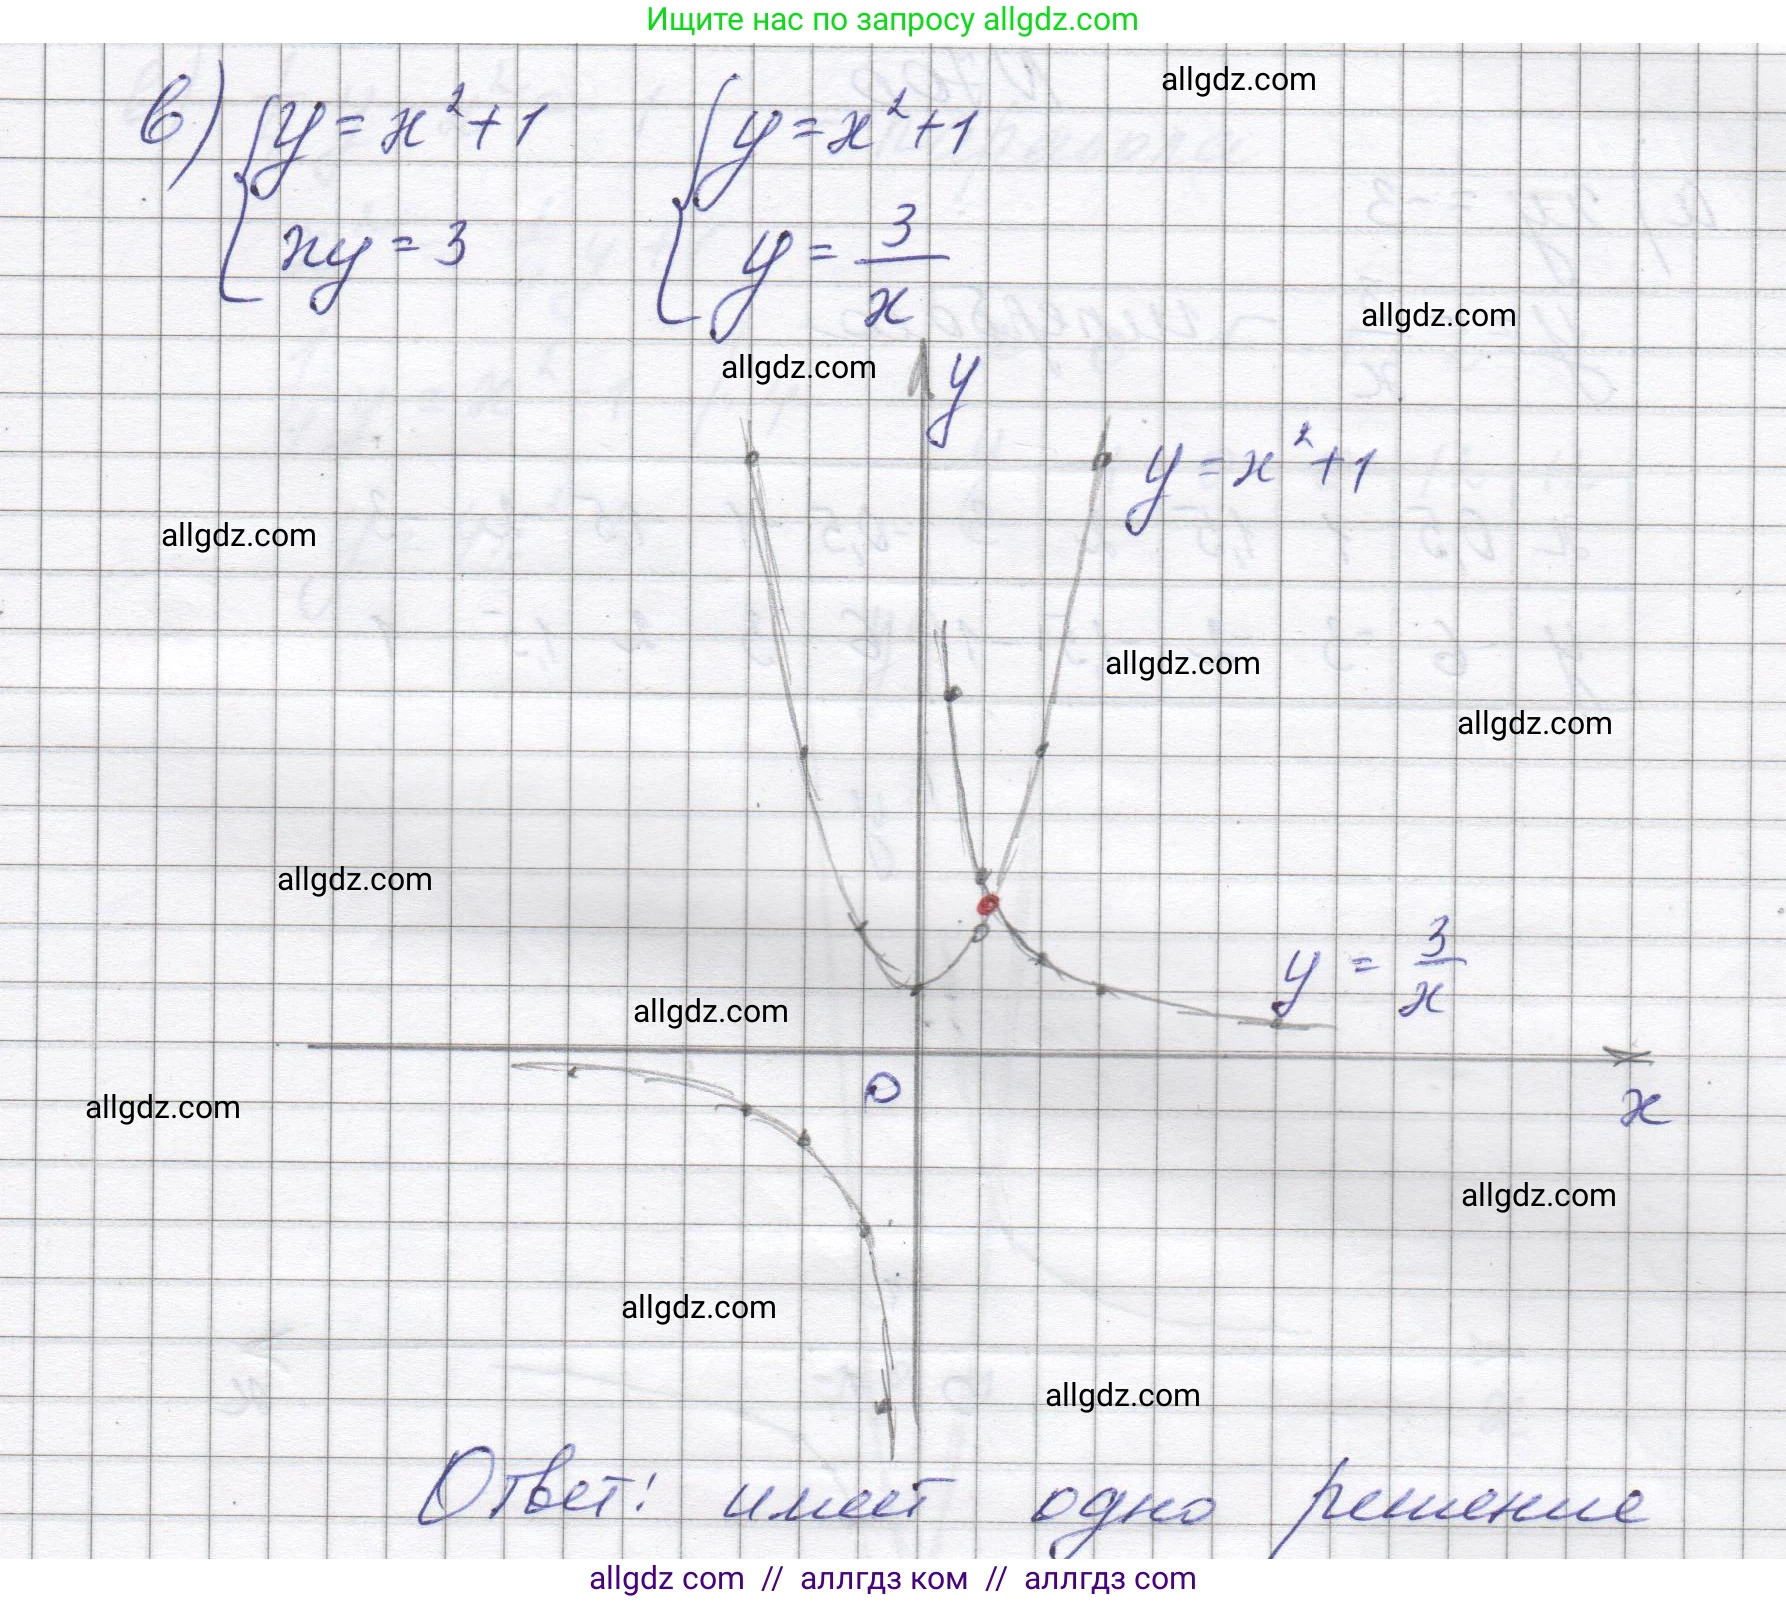 Ищите нас по запросу allgdz.com
allgdz.com
в) { y = x² + 1    { y = x² + 1
xy = 3    y = 3/x
allgdz.com
allgdz.com
y
y = x² + 1
allgdz.com
allgdz.com
allgdz.com
allgdz.com
y = 3/x
allgdz.com
0
x
allgdz.com
allgdz.com
allgdz.com
allgdz.com
Ответ: имеет одно решение
allgdz com // аллгдз ком // аллгдз com